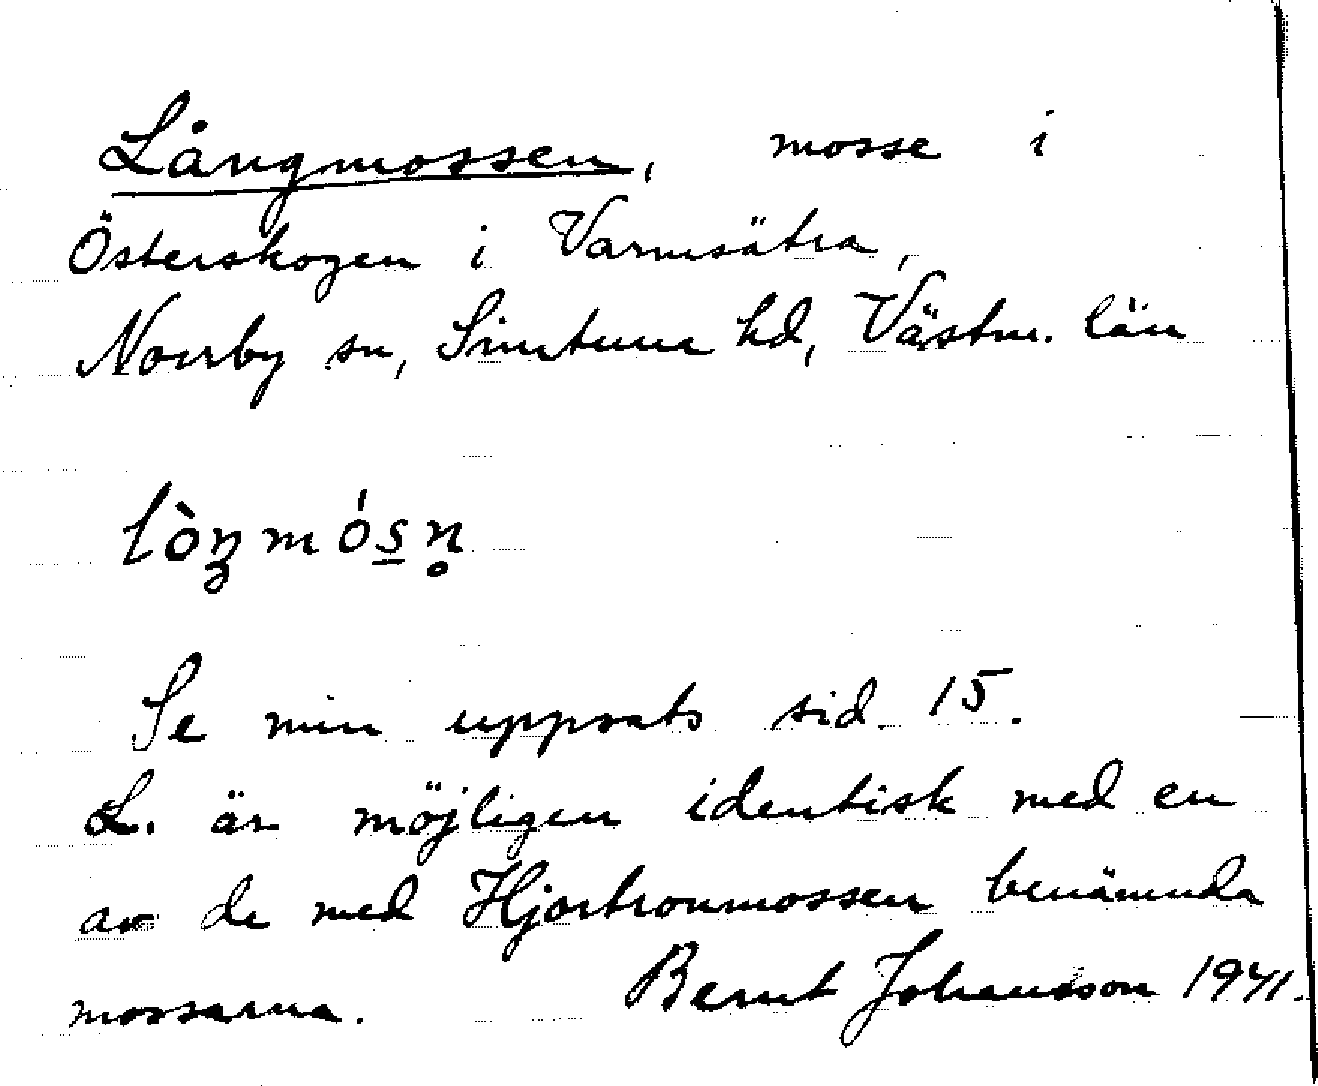 Långmossen, mosse i
Österskogen i Varmsätra,
Norrby sn, Simtuna hd, Västm. län
lòŋmósn̥
Se min uppsats sid. 15.
L. är möjligen identisk med en
av de med Hjortronmossen benämnda
mossarna. Bernt Johansson 1941.